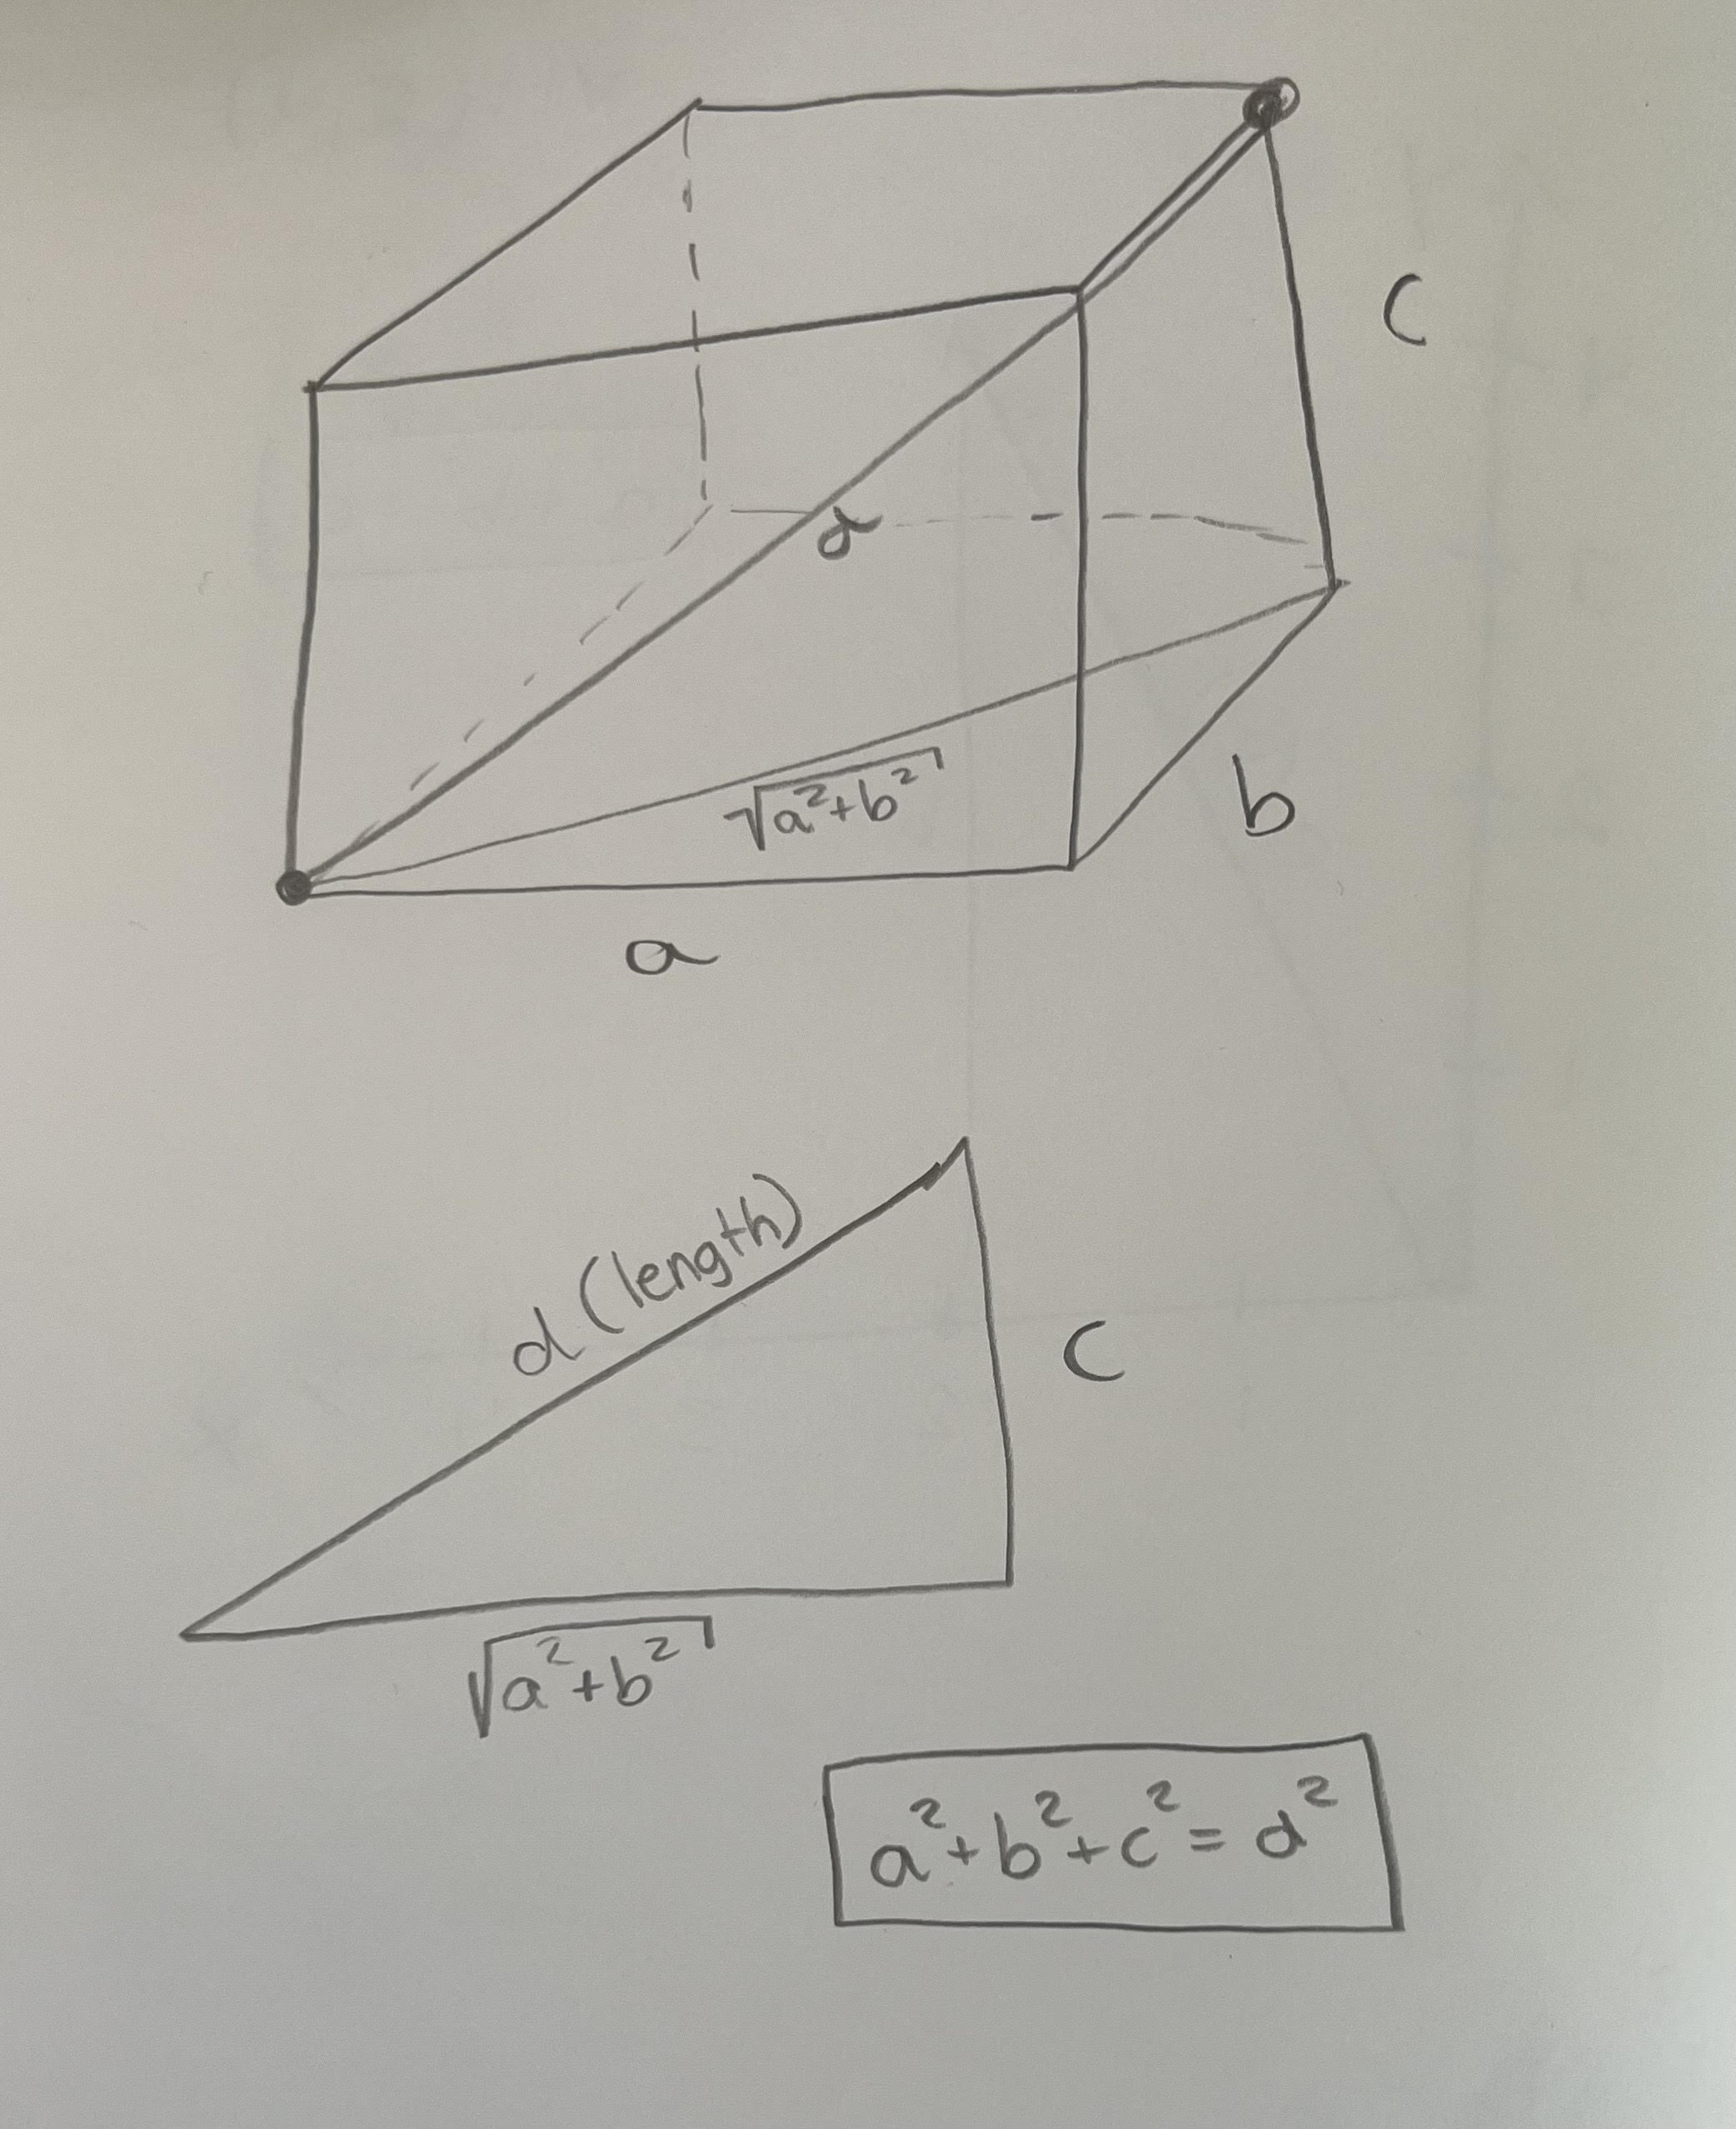 c
d
√a²+b²
b
a
d (length)
c
√a²+b²
a²+b²+c²=d²